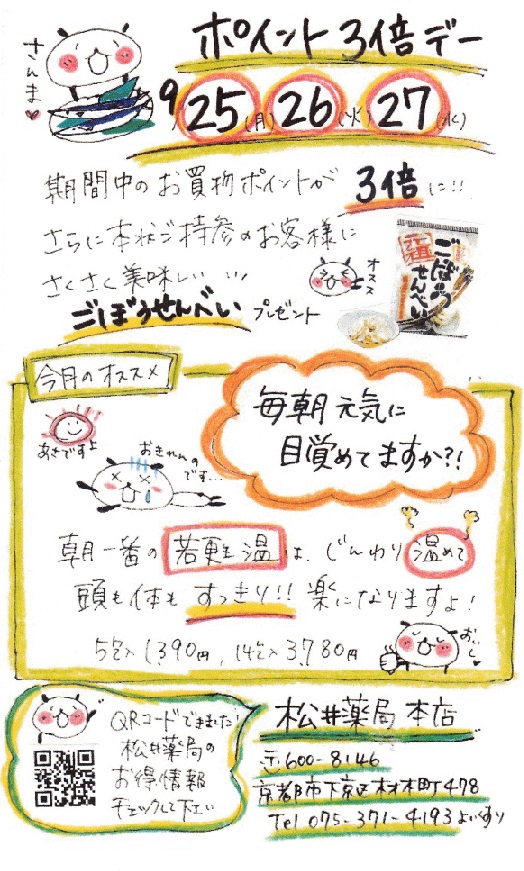 ポイント3倍デー
さんま
9/25(月)26(火)27(水)
期間中のお買物ポイントが3倍に!!
さらに本状ご持参のお客様に
さくさく美味しい…
オススメ
ごぼうせんべい
ごぼうせんべい プレゼント
今月のオススメ
毎朝元気に
目覚めてますか?!
あさですよ
おきれんのです…
朝一番の若甦温は、じんわり温めて
頭も体もすっきり!!楽になりますよ!
5包入1390円、14包入3780円
QRコードできました!
松井薬局の
お得情報
チェックして下さい
松井薬局 本店
〒600-8146
京都市下京区材木町478
Tel 075-371-4193よいくすり